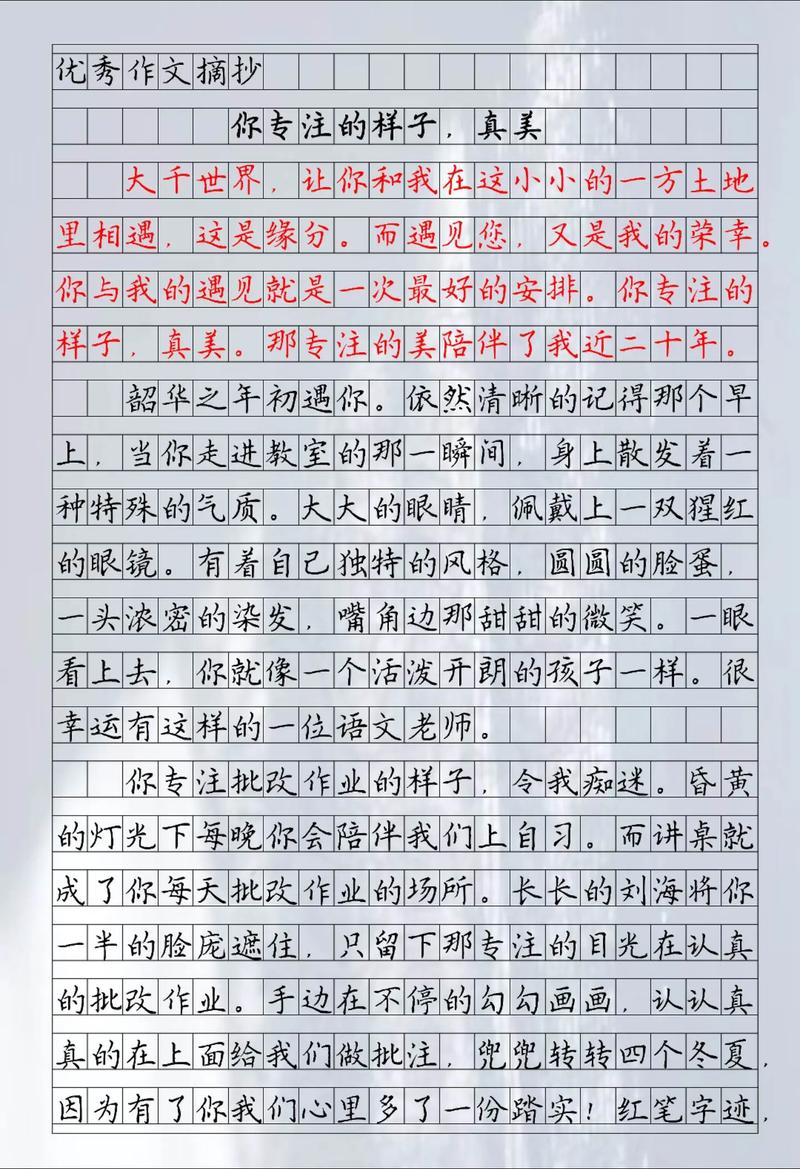 优秀作文摘抄
你专注的样子，真美
大千世界，让你和我在这小小的一方土地
里相遇，这是缘分。而遇见您，又是我的荣幸。
你与我的遇见就是一次最好的安排。你专注的
样子，真美。那专注的美陪伴了我近二十年。
韶华之年初遇你。依然清晰的记得那个早
上，当你走进教室的那一瞬间，身上散发着一
种特殊的气质。大大的眼睛，佩戴上一双猩红
的眼镜。有着自己独特的风格，圆圆的脸蛋，
一头浓密的染发，嘴角边那甜甜的微笑。一眼
看上去，你就像一个活泼开朗的孩子一样。很
幸运有这样的一位语文老师。
你专注批改作业的样子，令我痴迷。昏黄
的灯光下每晚你会陪伴我们上自习。而讲桌就
成了你每天批改作业的场所。长长的刘海将你
一半的脸庞遮住，只留下那专注的目光在认真
的批改作业。手边在不停的勾勾画画，认认真
真的在上面给我们做批注，兜兜转转四个冬夏，
因为有了你我们心里多了一份踏实！红笔字迹，